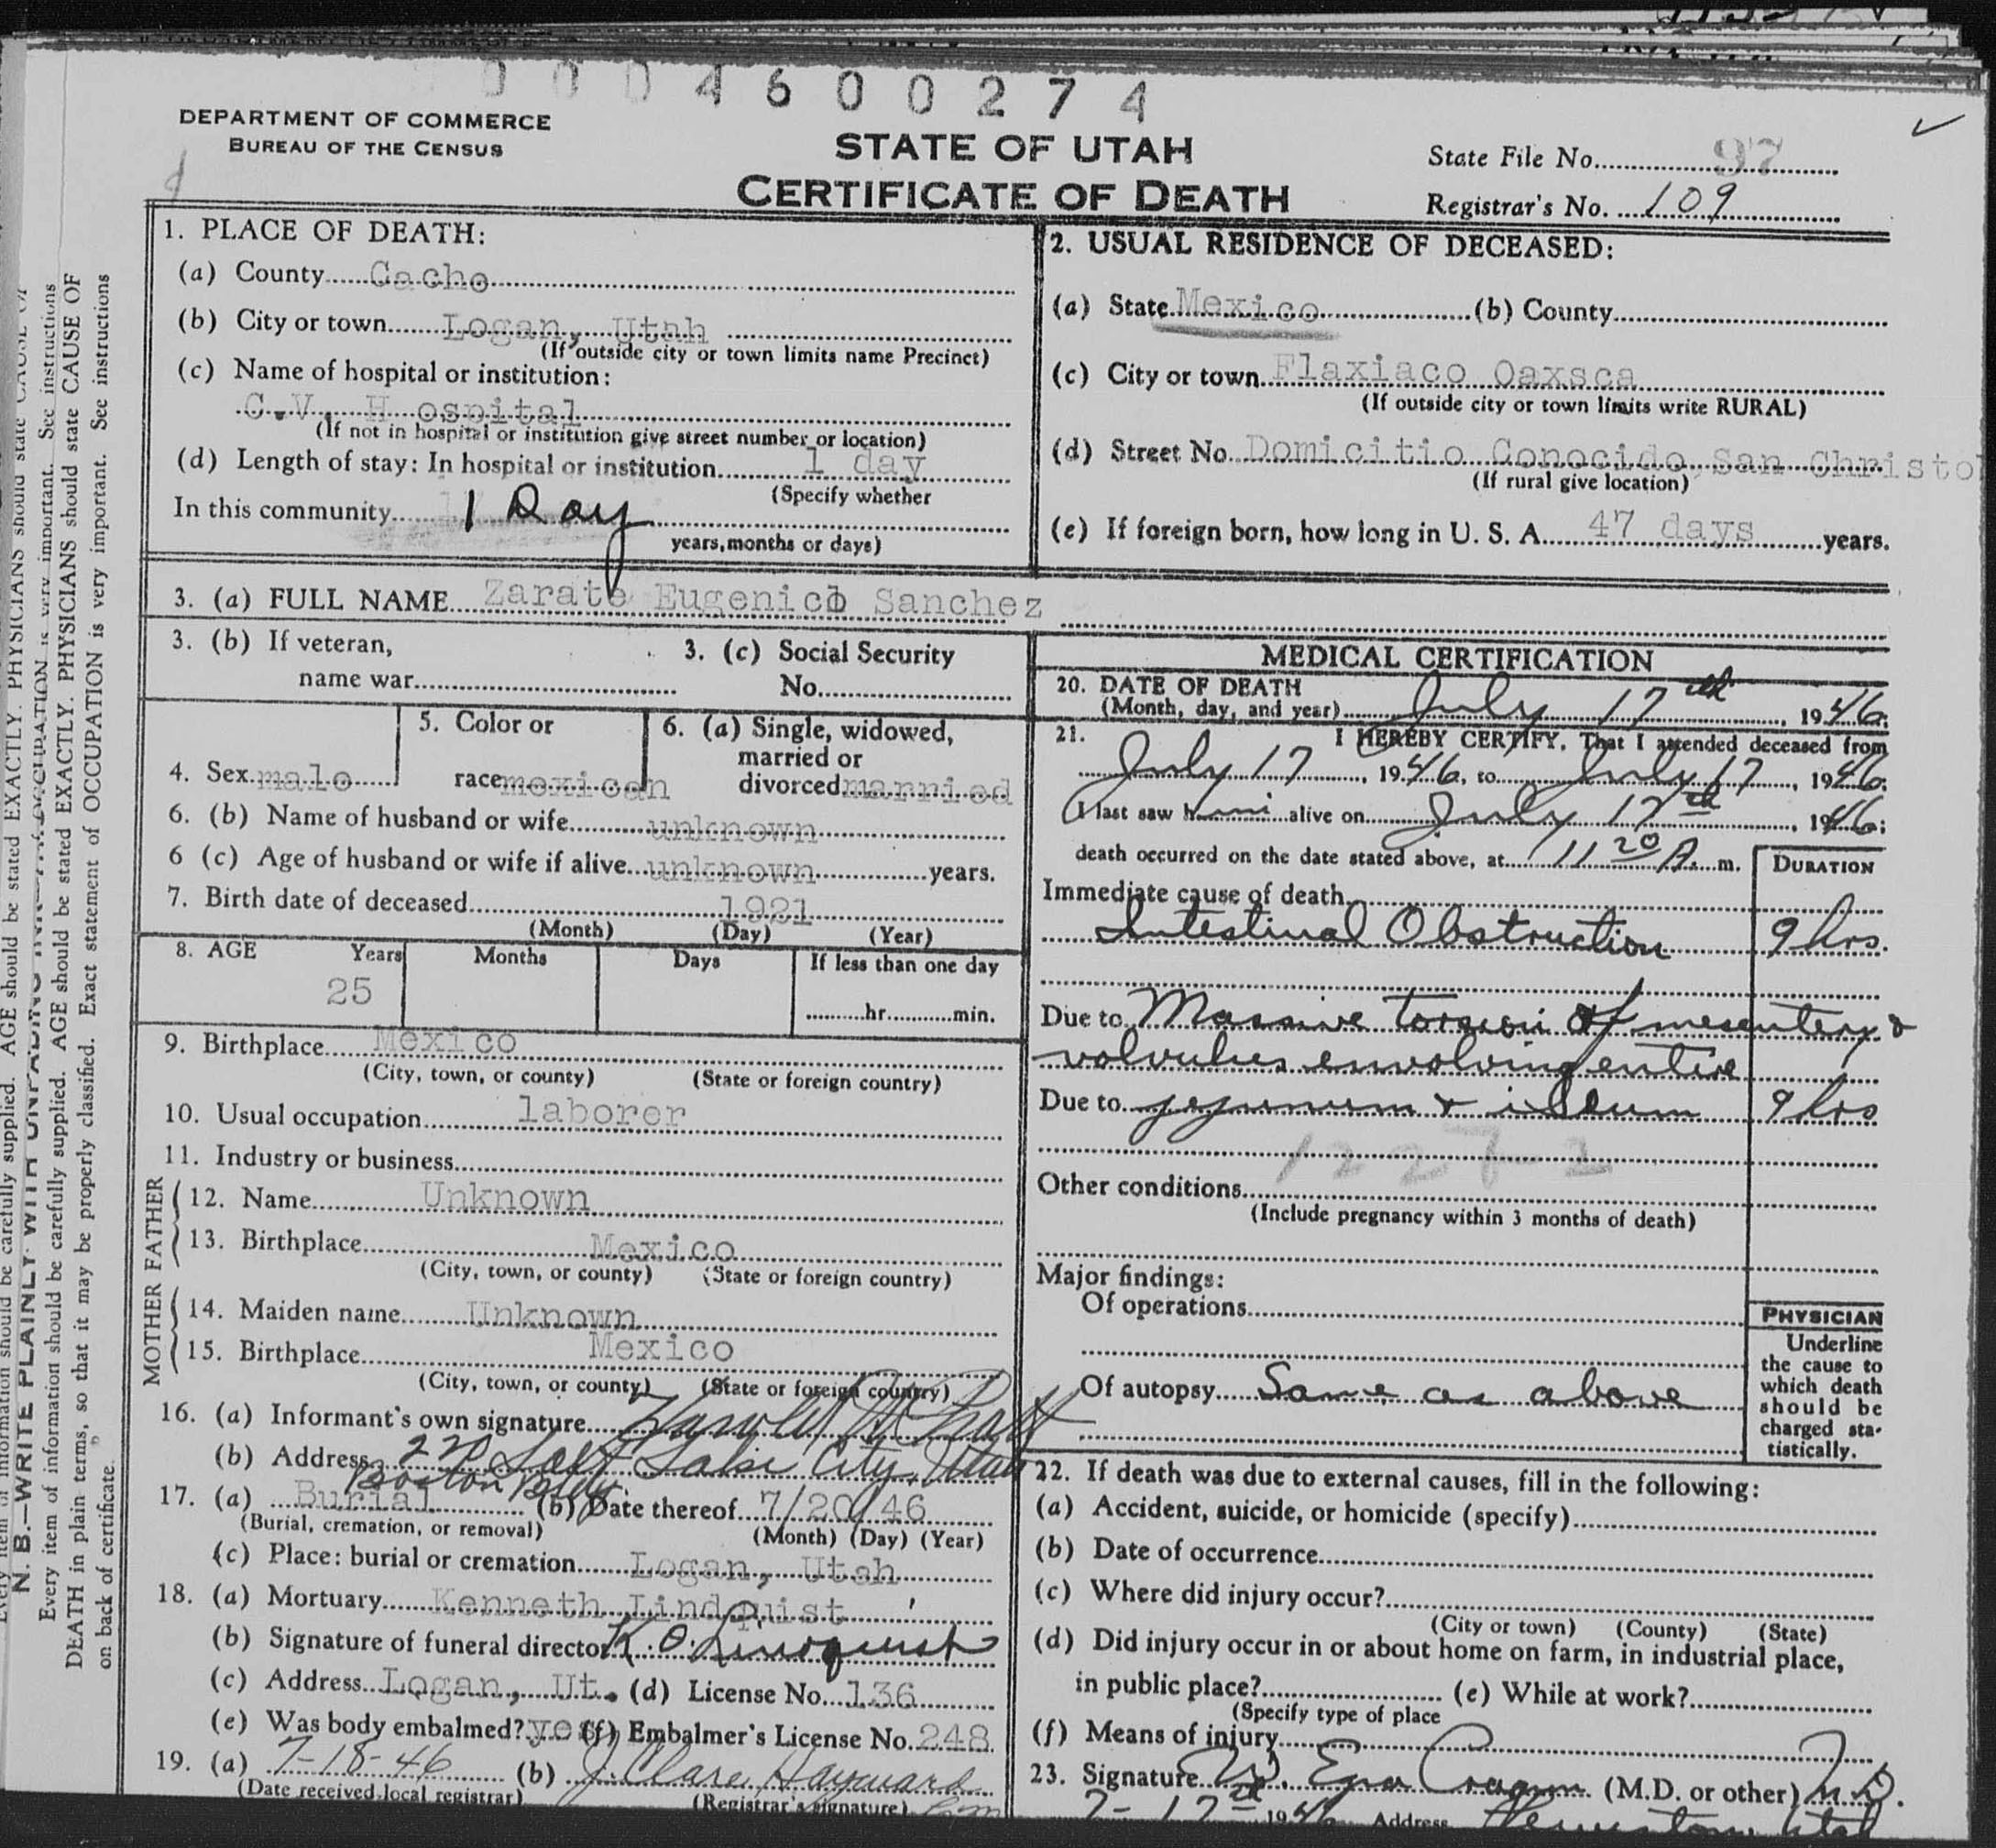 0004600274
DEPARTMENT OF COMMERCE
BUREAU OF THE CENSUS
STATE OF UTAH
CERTIFICATE OF DEATH
State File No. 97
Registrar's No. 109
1. PLACE OF DEATH:
(a) County Cache
(b) City or town Logan, Utah
(If outside city or town limits name Precinct)
(c) Name of hospital or institution:
C.V. H ospital
(If not in hospital or institution give street number or location)
(d) Length of stay: In hospital or institution 1 day
(Specify whether
In this community 1 Day
years, months or days)
2. USUAL RESIDENCE OF DECEASED:
(a) State Mexico (b) County
(c) City or town Flaxiaco Oaxsca
(If outside city or town limits write RURAL)
(d) Street No. Domicitio Conocido San Christo
(If rural give location)
(e) If foreign born, how long in U. S. A. 47 days years.
3. (a) FULL NAME Zarate Eugenico Sanchez
3. (b) If veteran,
name war
3. (c) Social Security
No.
4. Sex male
5. Color or
race mexican
6. (a) Single, widowed,
married or
divorced married
6. (b) Name of husband or wife unknown
6 (c) Age of husband or wife if alive unknown years.
7. Birth date of deceased 1921
(Month) (Day) (Year)
8. AGE Years Months Days If less than one day
25 hr. min.
9. Birthplace Mexico
(City, town, or county) (State or foreign country)
10. Usual occupation laborer
11. Industry or business
FATHER
12. Name Unknown
13. Birthplace Mexico
(City, town, or county) (State or foreign country)
MOTHER
14. Maiden name Unknown
15. Birthplace Mexico
(City, town, or county) (State or foreign country)
16. (a) Informant's own signature Harold
(b) Address 220 Salt Lake City, Utah
Boston Bldg
17. (a) Burial (b) Date thereof 7/20/46
(Burial, cremation, or removal) (Month) (Day) (Year)
(c) Place: burial or cremation Logan, Utah
18. (a) Mortuary Kenneth Lindquist
(b) Signature of funeral director K. O. Lindquist
(c) Address Logan, Ut. (d) License No. 136
(e) Was body embalmed? yes (f) Embalmer's License No. 248
19. (a) 7-18-46 (b) J. Clare Hayward
(Date received local registrar) (Registrar's signature)
MEDICAL CERTIFICATION
20. DATE OF DEATH
(Month, day, and year) July 17th, 1946;
21. I HEREBY CERTIFY, That I attended deceased from
July 17, 1946, to July 17, 1946;
I last saw him alive on July 17th, 1946;
death occurred on the date stated above, at 11 20 A. m.
DURATION
Immediate cause of death
Intestinal Obstruction 9 hrs.
Due to Massive torsion of mesentery &
volvulus envolving entire
Due to jejunum & ileum 9 hrs
1227-2
Other conditions
(Include pregnancy within 3 months of death)
Major findings:
Of operations
Of autopsy Same as above
PHYSICIAN
Underline
the cause to
which death
should be
charged sta-
tistically.
22. If death was due to external causes, fill in the following:
(a) Accident, suicide, or homicide (specify)
(b) Date of occurrence
(c) Where did injury occur?
(City or town) (County) (State)
(d) Did injury occur in or about home on farm, in industrial place,
in public place? (e) While at work?
(Specify type of place
(f) Means of injury
23. Signature W. Ezra Cragun (M.D. or other) M.D.
7-17th 1946 Address Utah
N. B.—WRITE PLAINLY WITH UNFADING
Every item of information should be carefully supplied. AGE should be stated EXACTLY. PHYSICIANS should state CAUSE OF
DEATH in plain terms, so that it may be properly classified. Exact statement of OCCUPATION is very important. See instructions
on back of certificate.